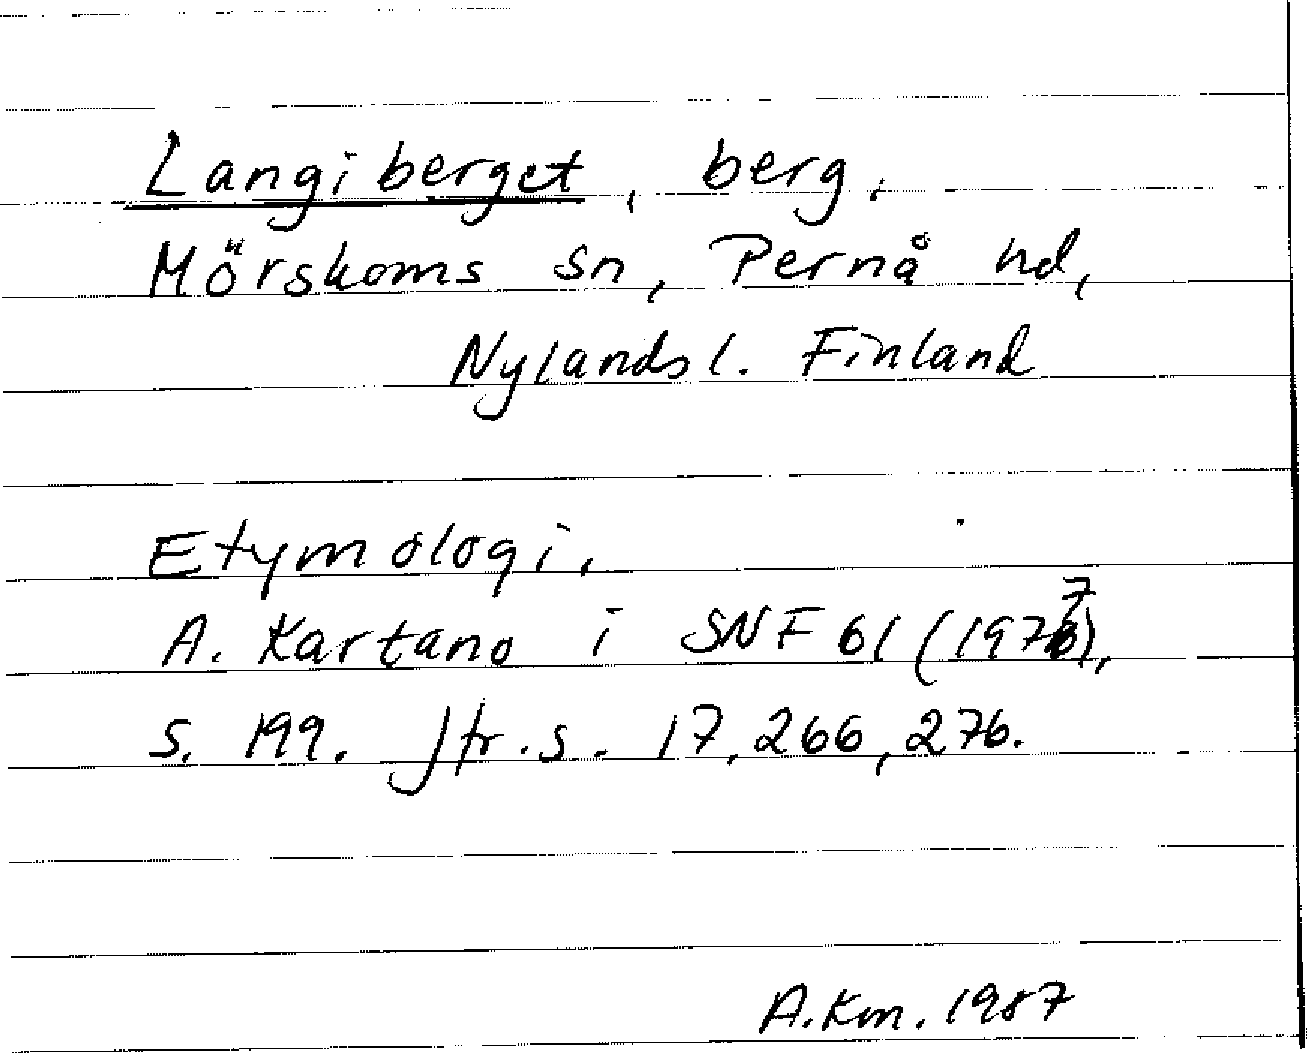 Langiberget, berg.
Mörskoms sn, Pernå hd,
Nylands l. Finland
Etymologi.
A. Kartano i SNF 61 (1977),
s. 199. Jfr. s. 17, 266, 276.
A.Km. 1987